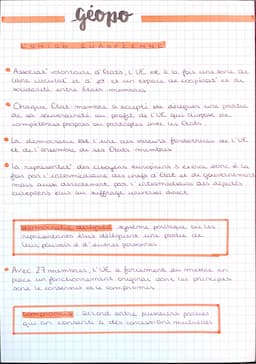 Géopo
L'UNION EUROPÉENNE
Associat° volontaire d'États, l'UE est à la fois une zone de
libre circulat° et d' et un espace de coopérat° et de
solidarité entre États membres
Chaque État membre a accepté de déléguer une partie
de sa souveraineté au profit de l'UE qui dispose de
compétences propres ou partagées avec les États.
La démocratie est l'une des valeurs fondatrices de l'UE
et de l'ensemble de ses États membres
La représentat° des citoyens européens s'exerce donc à la
fois par l'intermédiaire des chefs d'État et de gouvernement
mais aussi directement par l'intermédiaire des députés
européens élus au suffrage universel direct
Démocratie déléguée : système politique où les
représentants élus délèguent une partie de
leur pouvoir à d'autres personnes
Avec 27 membres, l'UE a forcément du mettre en
place un fonctionnement original dont les principes
sont le consensus et le compromis
Compromis : accord entre plusieurs parties
qui on consenti à des concessions mutuelles